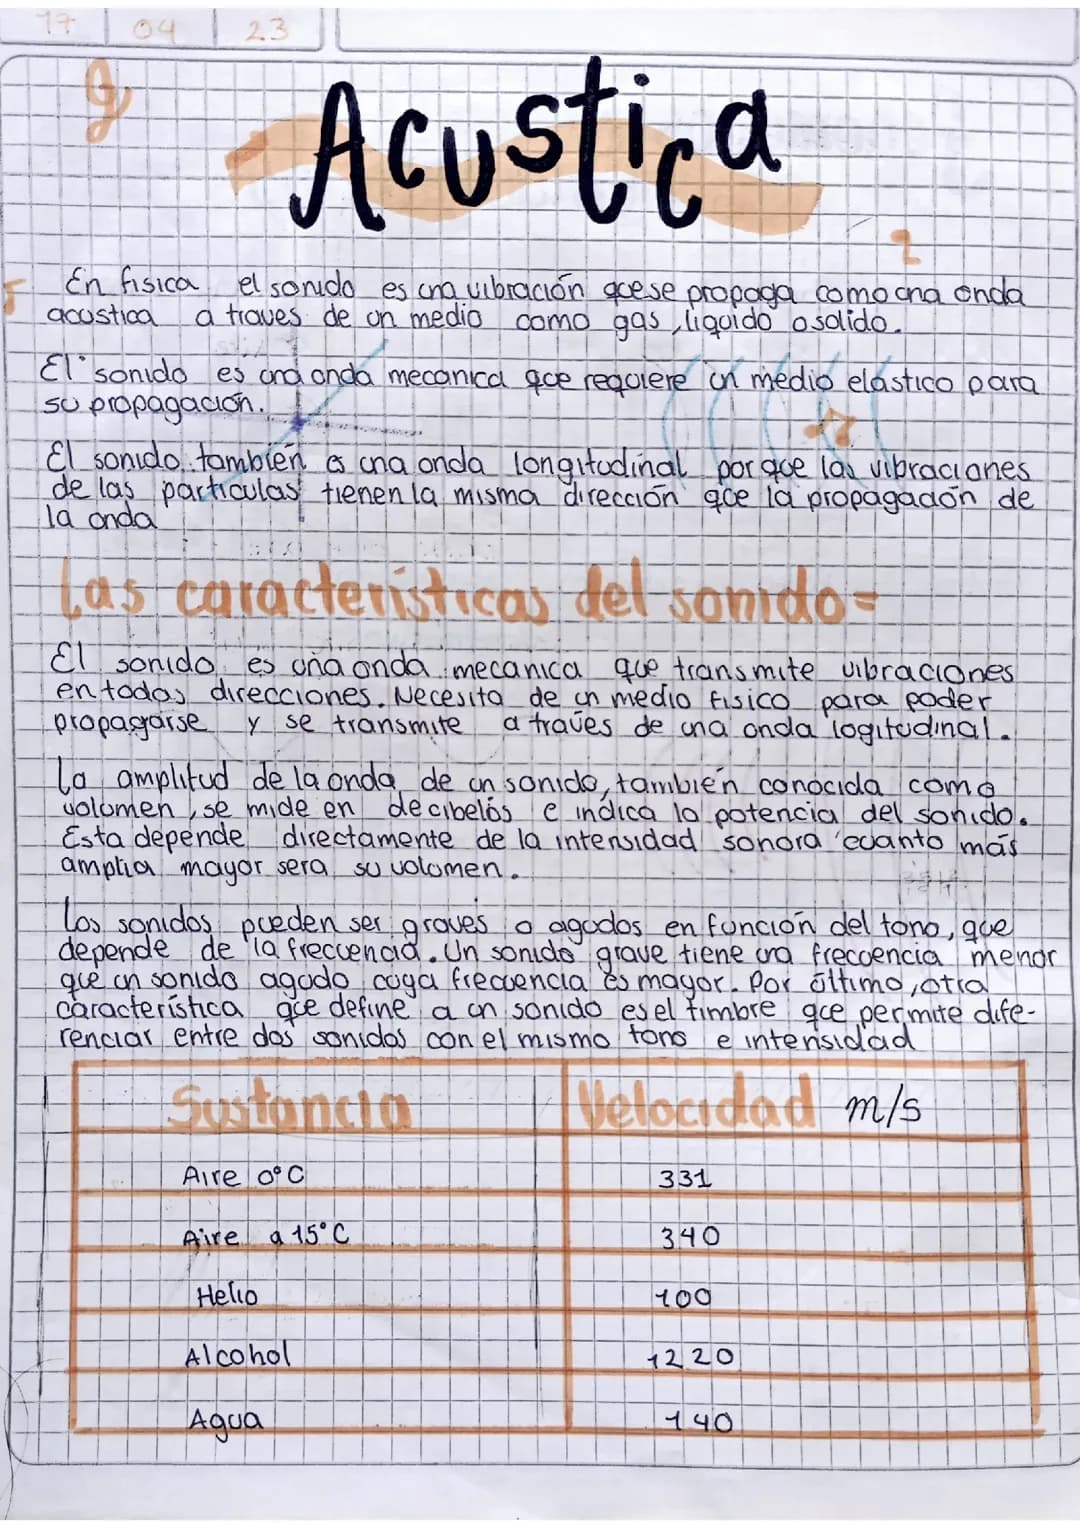 17 04 23
Acustica
En fisica el sonido es una vibración que se propaga como una onda
acustica a traves de un medio como gas, liquido o solido.
El sonido es una onda mecanica que requiere un medio elástico para
su propagación.
El sonido también es una onda longitudinal porque las vibraciones
de las particulas tienen la misma dirección que la propagación de
la onda
Las caracteristicas del sonido=
El sonido es una onda mecanica que transmite vibraciones
en todas direcciones. Necesita de un medio fisico para poder
propagarse y se transmite a través de una onda logitudinal.
La amplitud de la onda de un sonido, también conocida como
volumen, se mide en decibelós e indica la potencia del sonido.
Esta depende directamente de la intensidad sonora cuanto más
amplia mayor sera su volumen.
Los sonidos pueden ser graves o agudos en función del tono, que
depende de la frecuencia. Un sonido grave tiene una frecuencia menor
que un sonido agudo cuya frecuencia es mayor. Por último, otra
característica que define a un sonido es el timbre que permite dife-
renciar entre dos sonidos con el mismo tono e intensidad
Sustancia Velocidad m/s
Aire 0°C 331
Aire a 15°C 340
Helio 100
Alcohol 1220
Agua 140